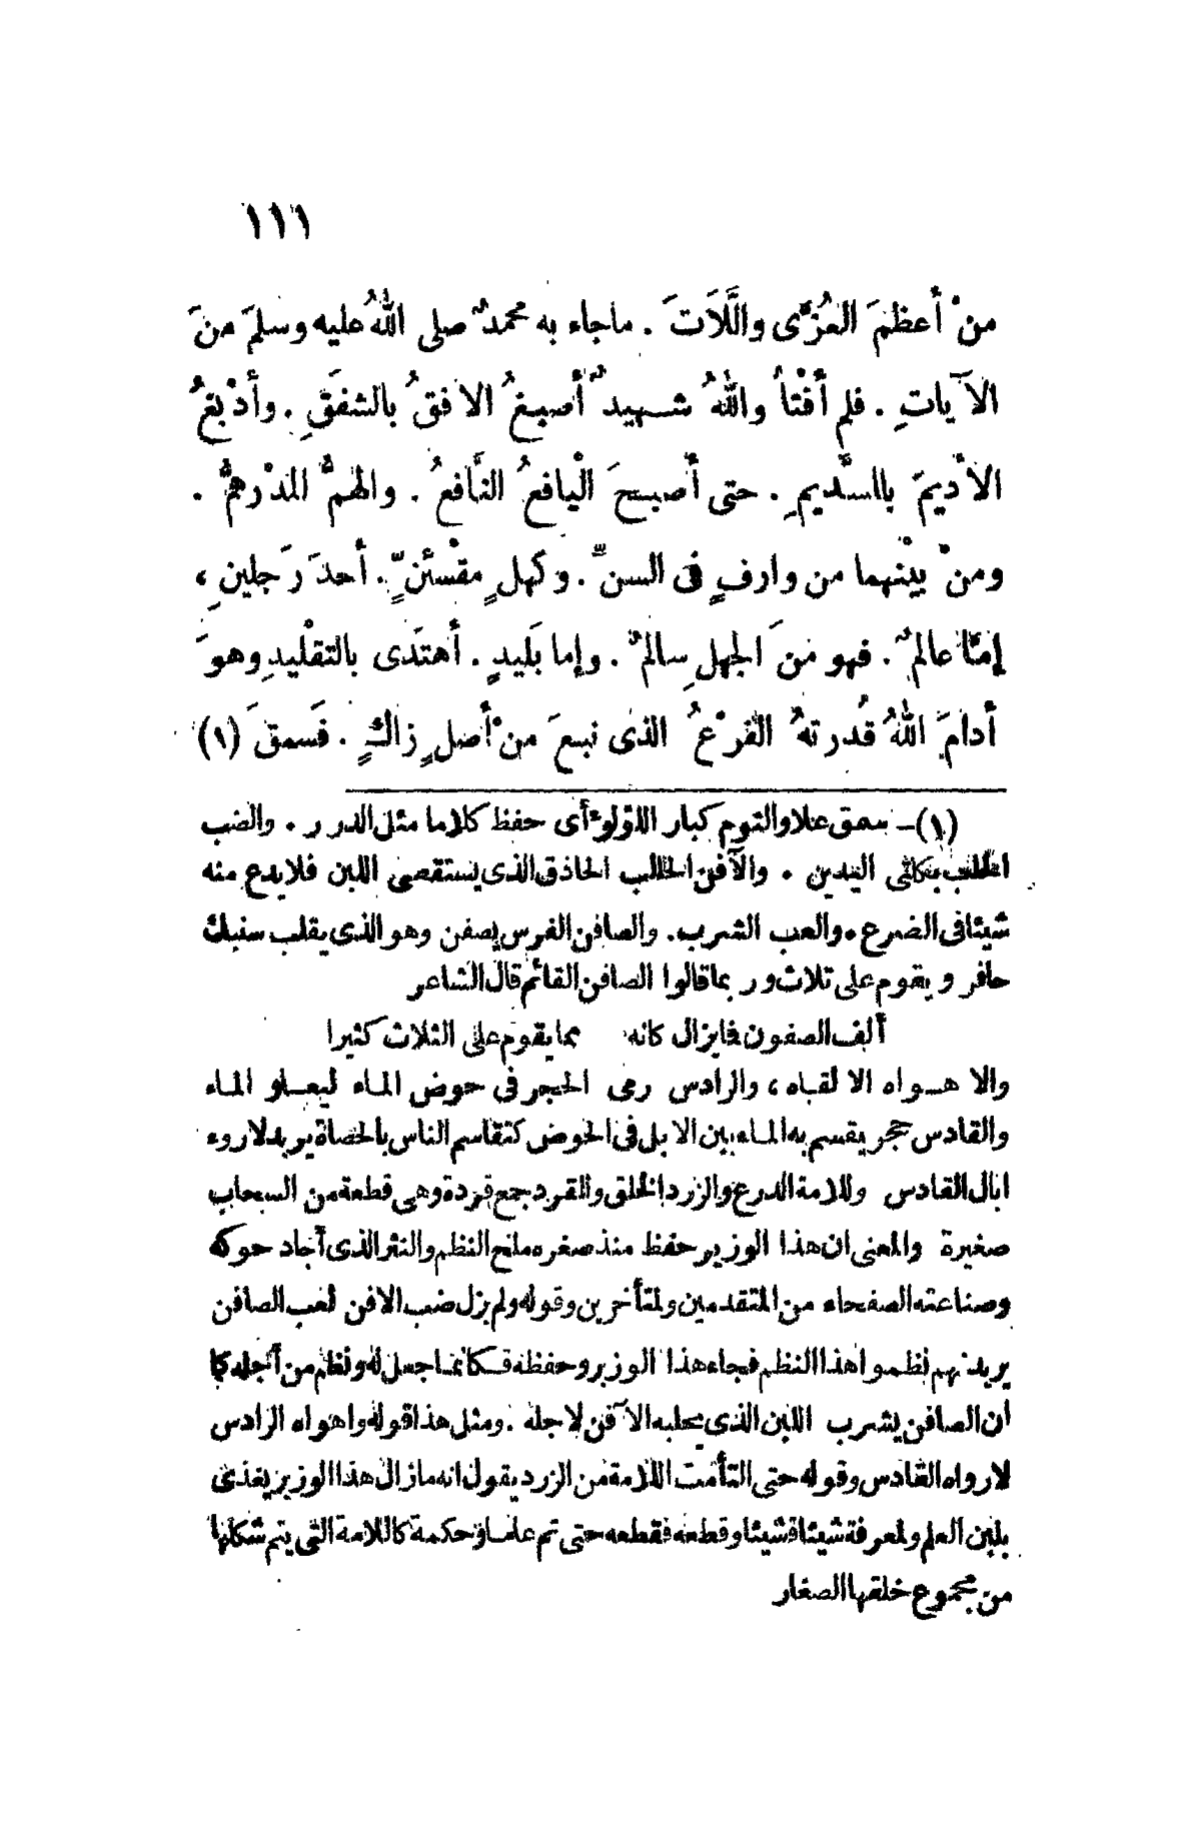 ١١١
منْ أعظمَ العُزَّى واللَّلاَتَ . ماجاء به محمدٌ صلى اللهُ عليه وسلمَ منَ
الآياتِ . فلم أفْتأُ واللهُ شهيدٌ أصبغُ الافقُ بالشفَقِ . وأدْبغُ
الأديمَ بالسَّديمِ . حتى أصبحَ الْيافعُ النَّافعُ . والهمُّ المدْرهمُّ .
ومنْ بيْنهما من وارفٍ فى السنِّ . وكهلٍ مقْسئنٍّ . أحدَ رَجلينِ ،
إمَّا عالمٌ . فهو منَ الجهلِ سالمٌ . وإما بَليدٍ . أهتَدى بالتقْليدِ وهوَ
أدامَ اللهُ قُدرتهُ الفرْعُ الذى نبعَ منْ أصلٍ زاكٍ . فَسمقَ (١)
(١)- سمق علا والتوم كبار اللؤلوء أى حفظ كلاما مثل الدرر . والضب
الحلب بكلتى اليدين . والآفن الحالب الحاذق الذى يستقصى اللبن فلا يدع منه
شيئا فى الضرع . والعب الشرب . والصافن الفرس يصفن وهو الذى يقلب سنبك
حافر ويقوم على ثلاث وربما قالوا الصافن القائم قال الشاعر
ألف الصفون فما يزال كانه مما يقوم على الثلاث كثيرا
والاهواه الالقباه ، والرادس رمى الحجر فى حوض الماء ليعلو الماء
والقادس حجر يقسم به الماء بين الابل فى الحوض كتقاسم الناس بالحصاة يريد لاروء
ابال القادس وللامة الدرع والزرد الخلق والقرد جمع قردة وهى قطعة من السحاب
صغيرة والمعنى ان هذا الوزير حفظ منذ صغره ملح النظم والنثر الذى أجاد حوكه
وصناعته الصفحاء من المتقدمين ولمتأخرين وقوله ولم يزل ضب الافن لعب الصافن
يريد نهم نظموا هذا النظم فجاء هذا الوزير وحفظه فكانما جعل له ونظم من أجله كما
ان الصافن يشرب اللبن الذى يحلبه الآفن لاجله . ومثل هذا قوله واهواه الرادس
لارواه القادس وقوله حتى التأمت اللامة من الزرد يقول انه مازال هذا الوزير يغذى
بلبن العلم ولمعرفة شيئا فشيئا وقطعه فقطعه حتى تم علما وحكمة كاللامة التى يتم شكلها
من مجموع خلقها الصغار